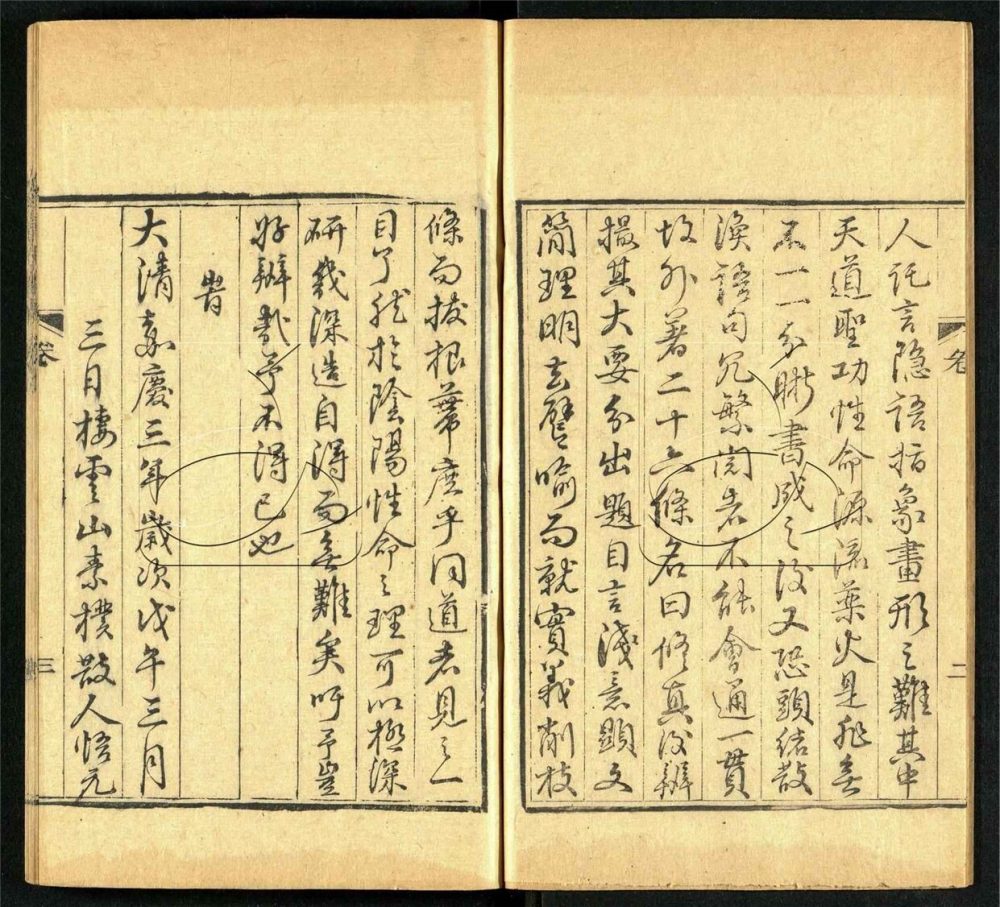 人託言隐語指象畫形之難其中
天道聖功性命源流藥火是非無
不一一分晰書成之後又恐頭緒散
渙語句冗繁閱者不能會通一貫
故外著二十六條名曰修真後辨
撮其大要分出題目言淺意顯文
簡理明去譬喻而就實義削枝
條而拔根蒂庶乎同道者見之一
目了然於陰陽性命之理可以極深
研幾深造自得而無難矣吁予豈
好辨哉予不得已也
旹
大清嘉慶三年歲次戊午三月
三日棲雲山素樸散人悟元
卷
二
卷
三